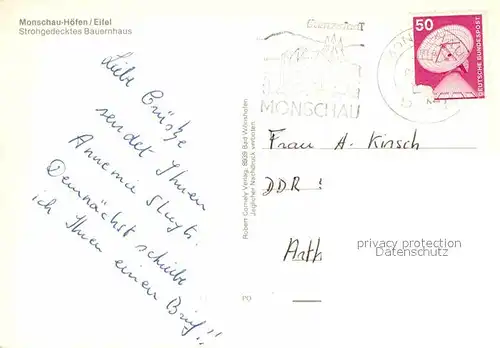 Monschau-Höfen / Eifel
Strohgedecktes Bauernhaus
Liebe Grüße
sendet Ihnen
Annemie
Demnächst schreibe
ich Ihnen einen Brief!!
Robert Comely Verlag, 8939 Bad Wörishofen
Jeglicher Nachdruck verboten
MONSCHAU
50
DEUTSCHE BUNDESPOST
Frau A. Kirsch
DDR !
privacy protection
Datenschutz